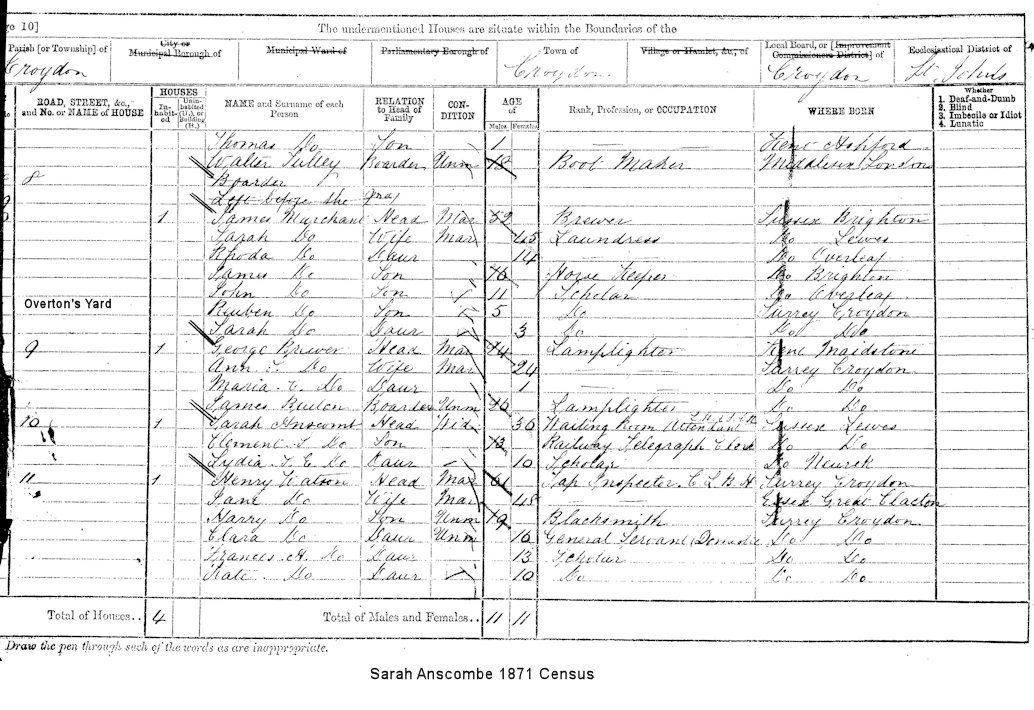 ge 10]
The undermentioned Houses are situate within the Boundaries of the
Parish [or Township] of City or Municipal Borough of Municipal Ward of Parliamentary Borough of Town of Village or Hamlet, &c., of Local Board, or [Improvement Commissioners District] of Ecclesiastical District of
Croydon Croydon Croydon St. Johns
ROAD, STREET, &c., and No. or NAME of HOUSE HOUSES Inhabited Uninhabited (U.), or Building (B.) NAME and Surname of each Person RELATION to Head of Family CONDITION AGE of Males Females Rank, Profession, or OCCUPATION WHERE BORN Whether 1. Deaf-and-Dumb 2. Blind 3. Imbecile or Idiot 4. Lunatic
Thomas Do Son 1 Kent Ashford
Walter Tulley Boarder Unm 18 Boot Maker Middlesex London
8 Boarder
Left before the
1 James Marchant Head Mar 52 Brewer Sussex Brighton
Sarah Do Wife Mar 45 Laundress Do Lewes
Rhoda Do Daur 14 Do Overleaf
James Do Son 16 Do Brighton
John Do Son 11 Scholar Do Overleaf
Overton's Yard
Reuben Do Son 5 Do Surrey Croydon
Sarah Do Daur 3 Do Do Do
9 1 George Brewer Head Mar Lamplighter Kent Maidstone
Ann Do Wife Mar 24 Surrey Croydon
Maria Do Daur 1 Do Do
James Boarder Unm Lamplighter Do Do
10 1 Sarah Anscomb Head Wid 36 Waiting Room Attendant Sussex Lewes
Clement Do Son 13 Railway Telegraph Clerk Do Do
Lydia S. E Do Daur 10 Scholar Do
11 1 Henry Watson Head Mar Inspector Surrey Croydon
Jane Do Wife Mar 48 Essex Great Clacton
Harry Do Son Unm 19 Blacksmith Surrey Croydon
Clara Do Daur Unm 16 General Servant (Domestic Do Do
Frances H. Do Daur 13 Scholar Do Do
Kate Do Daur 10 Do Do Do
Total of Houses.. 4 Total of Males and Females.. 11 11
Draw the pen through such of the words as are inappropriate.
Sarah Anscombe 1871 Census